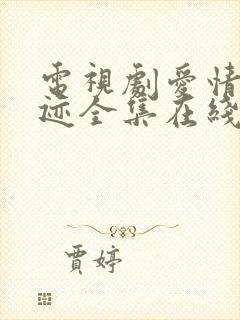 電視劇愛情
迹全集在綫
賈婷